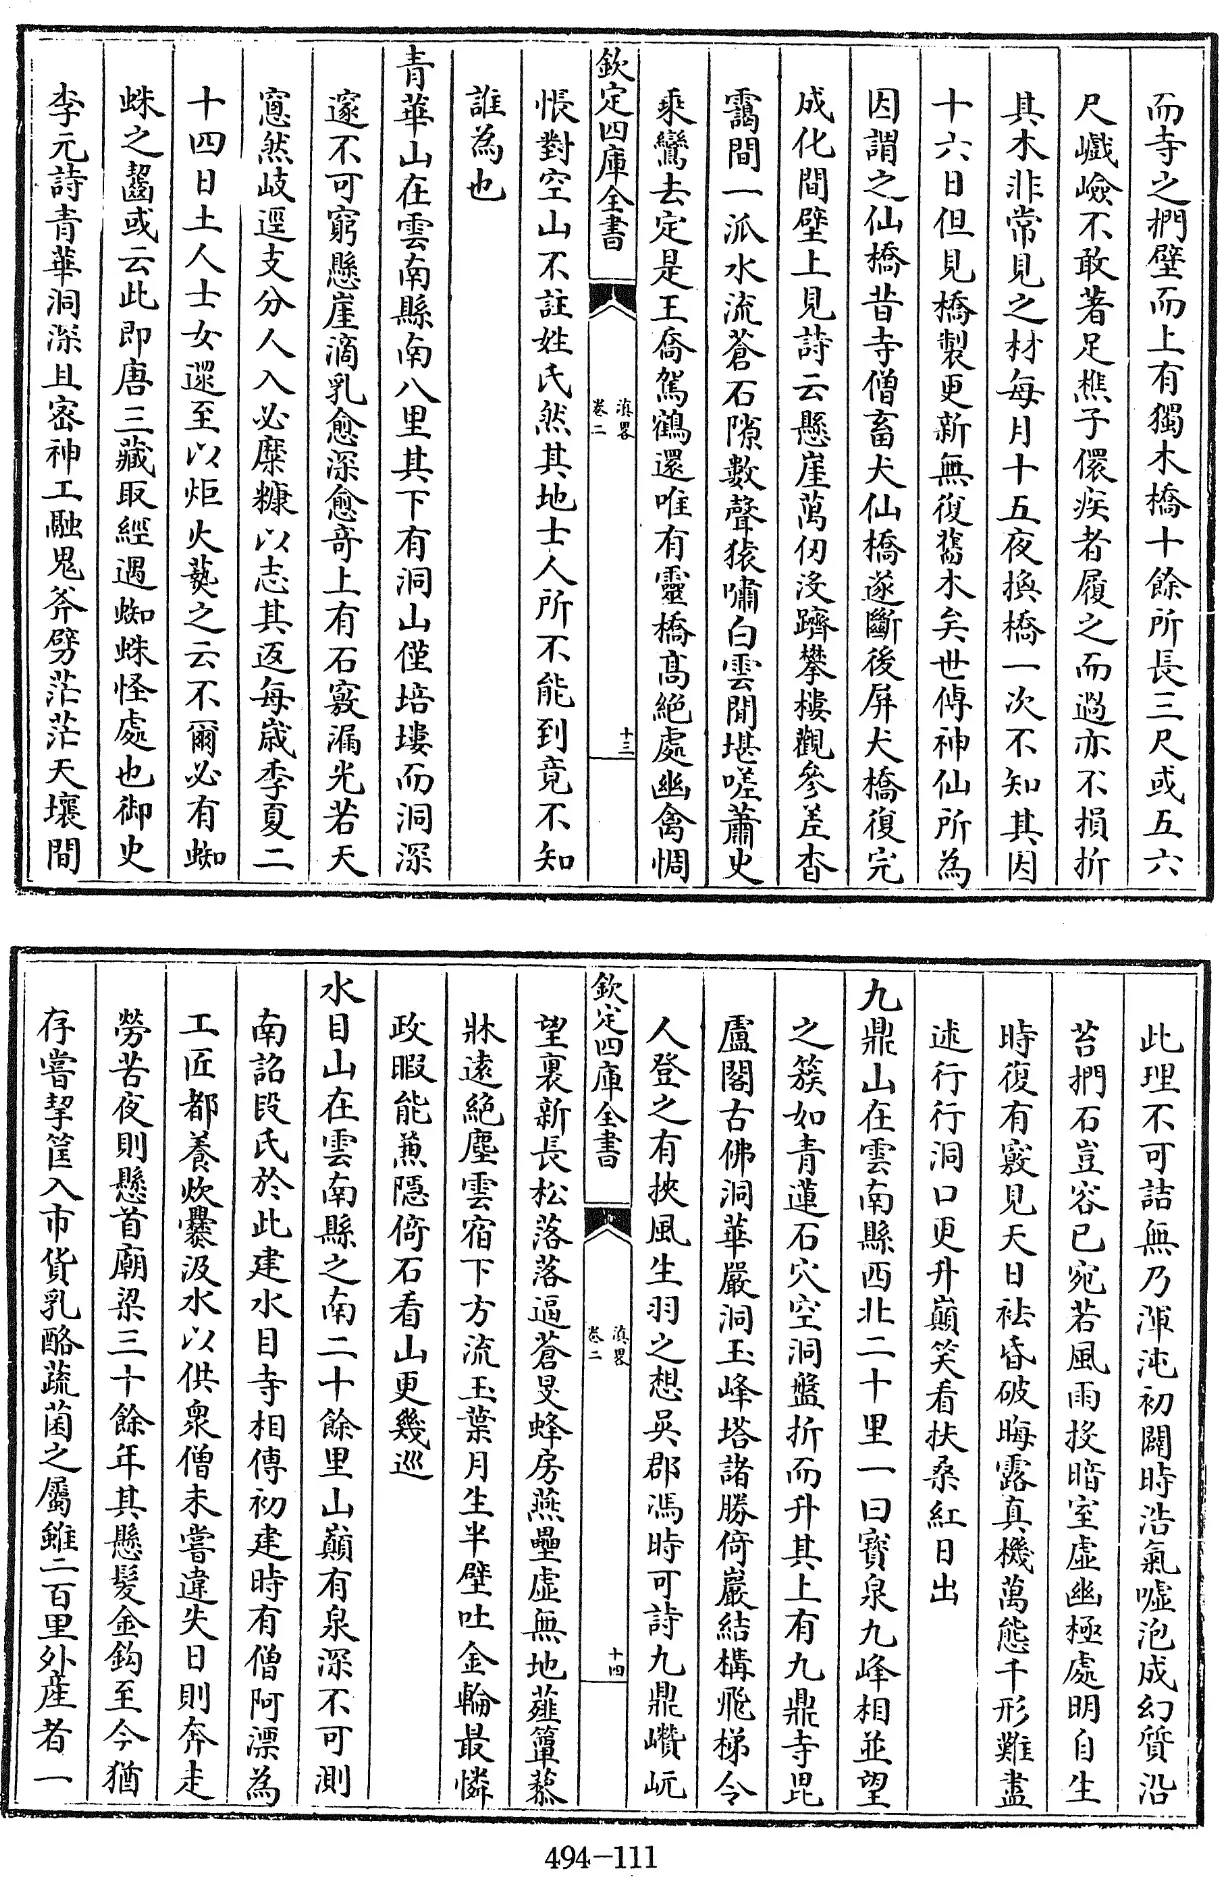 而寺之捫壁而上有獨木橋十餘所長三尺或五六
尺巇嶮不敢著足樵子儇疾者履之而過亦不損折
其木非常見之材每月十五夜換橋一次不知其因
十六日但見橋製更新無復舊木矣世傳神仙所為
因謂之仙橋昔寺僧畜犬仙橋遂斷後屏犬橋復完
成化間壁上見詩云懸崖萬仞没躋攀樓觀參差杳
靄間一派水流蒼石隙數聲猿嘯白雲閒堪嗟蕭史
乘鸞去定是王喬駕鶴還唯有靈橋髙絶處幽禽惆
欽定四庫全書
滇畧
卷二
十三
悵對空山不註姓氏然其地士人所不能到竟不知
誰為也
青華山在雲南縣南八里其下有洞山僅培塿而洞深
邃不可窮懸崖滴乳愈深愈奇上有石竅漏光若天
窻然岐逕支分人入必糜糠以志其返每歲季夏二
十四日土人士女遝至以炬火爇之云不爾必有蜘
蛛之齧或云此即唐三藏取經遇蜘蛛怪處也御史
李元詩青華洞深且宻神工融鬼斧劈茫茫天壤間
此理不可詰無乃渾沌初闢時浩氣噓泡成幻質沿
苔捫石豈容已宛若風雨投暗室虛幽極處明自生
時復有竅見天日袪昏破晦露真機萬態千形難盡
述行行洞口更升巔笑看扶桑紅日出
九鼎山在雲南縣西北二十里一曰寳泉九峰相並望
之簇如青蓮石穴空洞盤折而升其上有九鼎寺毘
盧閣古佛洞華嚴洞玉峰塔諸勝倚巖結構飛梯令
人登之有挾風生羽之想吳郡馮時可詩九鼎巑岏
欽定四庫全書
滇畧
卷二
十四
望裏新長松落落逼蒼旻蜂房燕壘虛無地薤簟藜
牀遠絶塵雲宿下方流玉葉月生半壁吐金輪最憐
政暇能兼隱倚石看山更幾巡
水目山在雲南縣之南二十餘里山巔有泉深不可測
南詔段氏於此建水目寺相傳初建時有僧阿漂為
工匠都養炊爨汲水以供衆僧未嘗違失日則奔走
勞苦夜則懸首廟梁三十餘年其懸髮金鈎至今猶
存嘗挈筐入市貨乳酪蔬菌之屬雖二百里外産者一
494-111